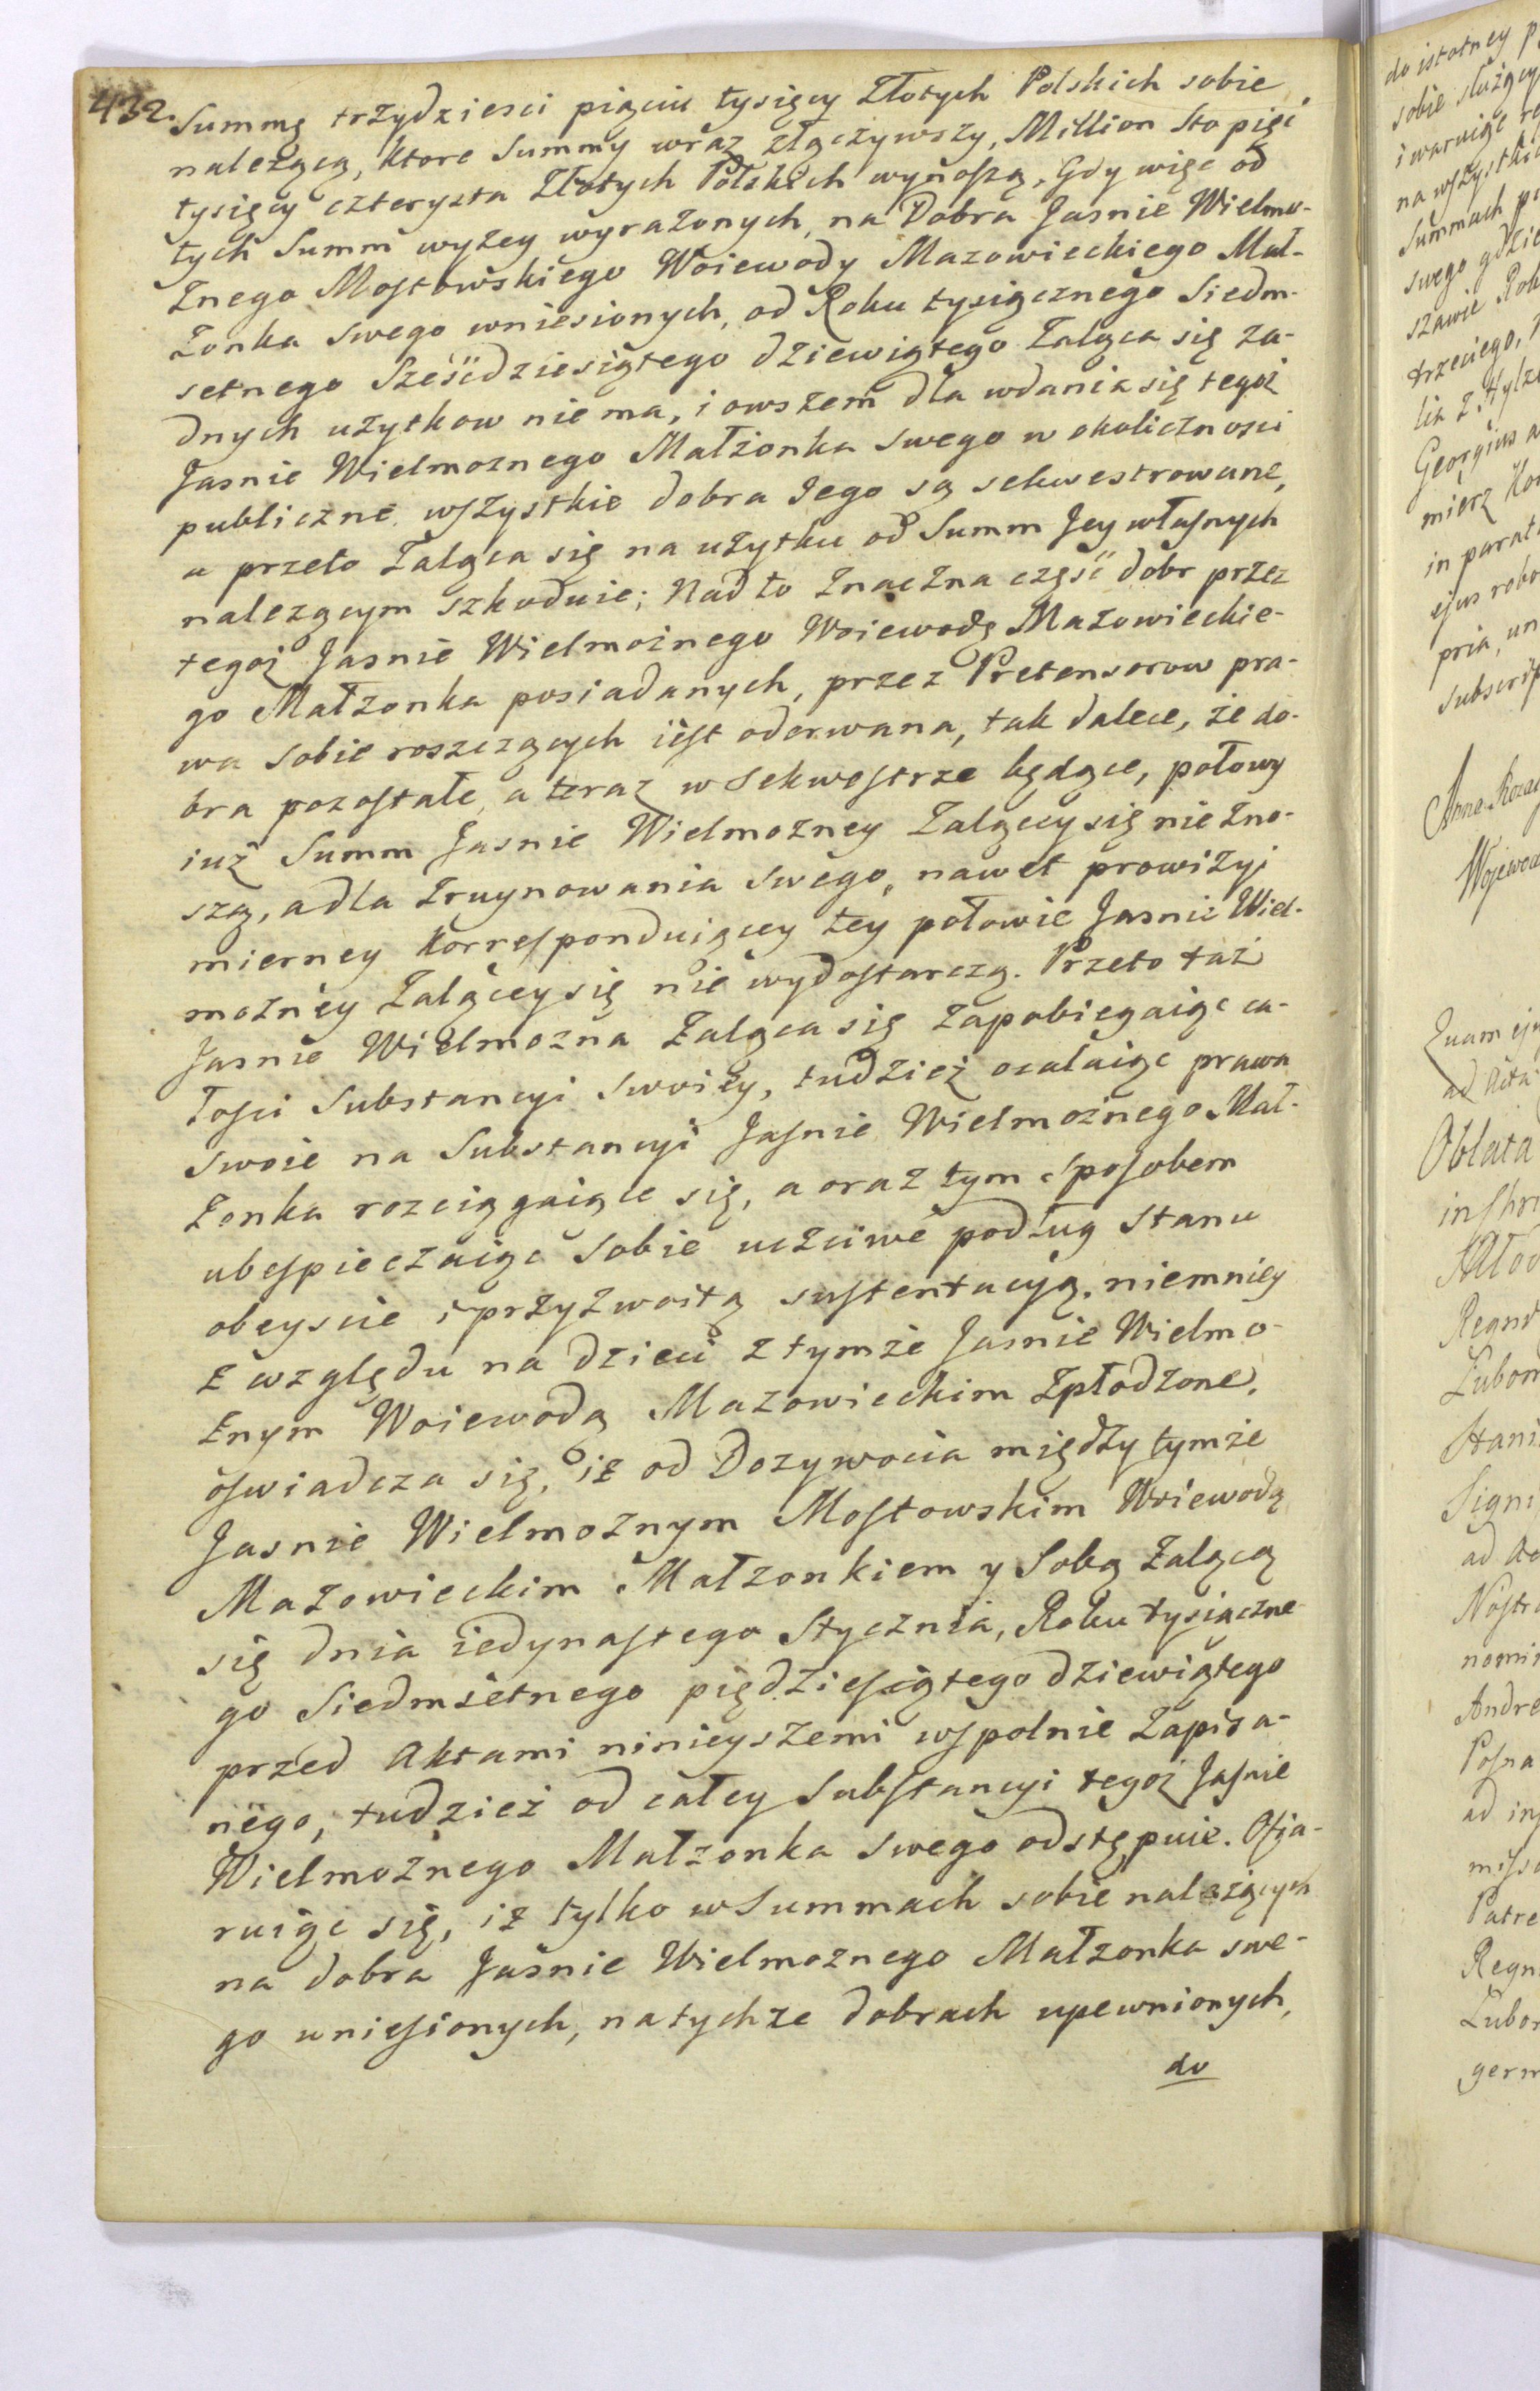 432.
Summę trzydziesci pięciu tysięcy Złotych Polskich sobie
należącą, ktore Summy wraz złączywszy, Million Sto pięć
tysięcy czterysta Złotych Polskich wynoszą, Gdy więc od
tych Summ wyżey wyrażonych, na Dobra Jasnie Wielmo-
żnego Mostowskiego Woiewody Mazowieckiego Mał-
żonka swego wniesionych, od Roku tysiącznego Siedm-
setnego Sześćdziesiątego dziewiątego Żaląca się ża-
dnych użytkow nie ma, i owszem dla wdania się tegoż
Jasnie Wielmoznego Małżonka swego w okolicznosci
publiczne wszystkie dobra Jego są sekwestrowane,
a przeto Żaląca się na użytku od Summ Jey własnych
nalezącym szkoduie; Nad to Znaczna część dobr przez
tegoż Jasnie Wielmożnego Woiewodę Mazowieckie-
go Małżonka posiadanych, przez Pretensorow pra-
wa sobie roszczących iest oderwana, tak dalece, że do-
bra pozostałe, a teraz w Sekwestrze będące, połowy
iuż Summ Jasnie Wielmożney Żalącey się nie zno-
szą, a dla Zruynowania swego, nawet prowizyi
mierney korrespónduiącey tey połowie Jasnie Wiel-
możney Żalącey się nie wydostarczą. Przeto taż
Jasnie Wielmożna Żaląca się zapobiegaiąc ca-
łości Substancyi swoiey, tudzież ocalaiąc prawa
swoie na Substancyi Jasnie Wielmożnego Mał-
żonka rozciągaiące się, a oraz tym sposobem
ubespieczaiąc sobie uczciwe podług Stanu
obeyscie i przyzwoitą sustentacyą, niemniey
z względu na dzieci z tymże Jasnie Wielmo-
żnym Woiewodą Mazowieckim Zpłodzone,
oswiadcza się, iż od Dozywocia między tymże
Jasnie Wielmożnym Mostowskim Woiewodą
Mazowieckim Małżonkiem y Sobą Żalącą
się dnia iedynastego Stycznia, Roku tysiączne-
go Siedmsetnego pięćdziesiątego dziewiątego
przed Aktami ninieyszemi wspolnie Zapisa-
nego, tudzież od całey Substancyi tegoż Jasnie
Wielmożnego Małżonka swego odstępuie. Ofia-
ruiąc się, iż tylko w Summach sobie należących
na dobra Jasnie Wielmożnego Małżonka swe-
go wniesionych, na tychże dobrach upewnionych,
do
do istotney
sobie służący
na wszystkie
Summach
swego gdzie
szawie Rok
trzeciego,
Georgius
mierz
ejus
pria,
Anna
ad Acta
Oblata
Signi
ad
Andre
Patre
Regn